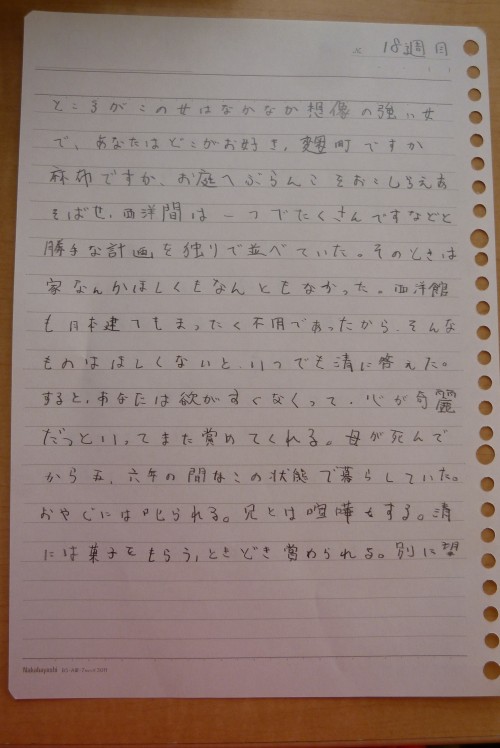 18週目
ところがこの女はなかなか想像の強い女
で、あなたはどこがお好き、麹町ですか
麻布ですか、お庭へぶらんこをおこしらえあ
そばせ、西洋間は一つでたくさんですなどと
勝手な計画を独りで並べていた。そのときは
家なんかほしくもなんともなかった。西洋館
も日本建てもまったく不用であったから、そんな
ものはほしくないと、いつでも清に答えた。
すると、あなたは欲がすくなくって、心が奇麗
だっといってまた賞めてくれる。母が死んで
から五、六年の間なこの状態で暮らしていた。
おやじには叱られる。兄とは喧嘩をする。清
には菓子をもらう、ときどき賞められる。別に望
Nakabayashi